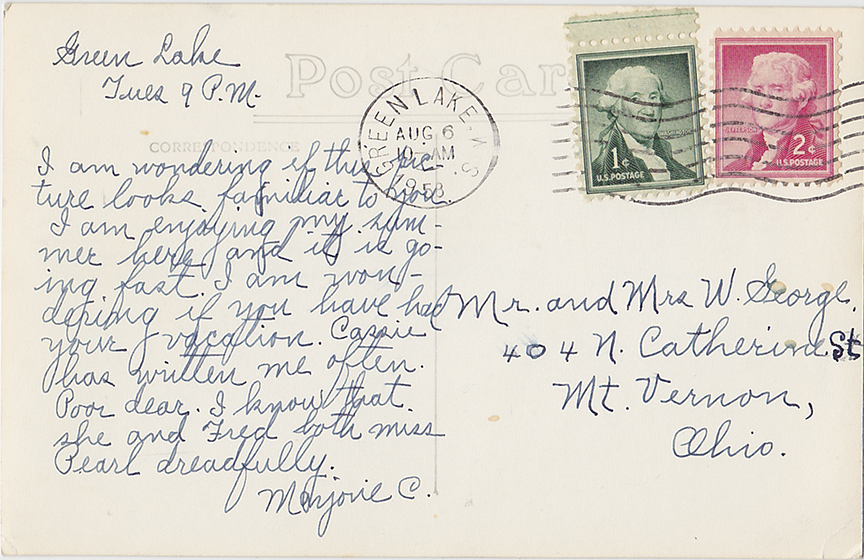 Green Lake
Tues 9 P.M.
Post Car
CORRESPONDENCE
GREEN LAKE, WIS.
AUG 6
10 AM
1958
WASHINGTON
1¢
U.S. POSTAGE
JEFFERSON
2¢
U.S. POSTAGE
I am wondering if this pic-
ture looks familiar to you.
I am enjoying my sum-
mer here and it is go-
ing fast. I am won-
dering if you have had
your vacation. Cassie
has written me often.
Poor dear. I know that
she and Fred both miss
Pearl dreadfully.
Marjorie C.
Mr. and Mrs W. George.
404 N. Catherine St
Mt. Vernon,
Ohio.